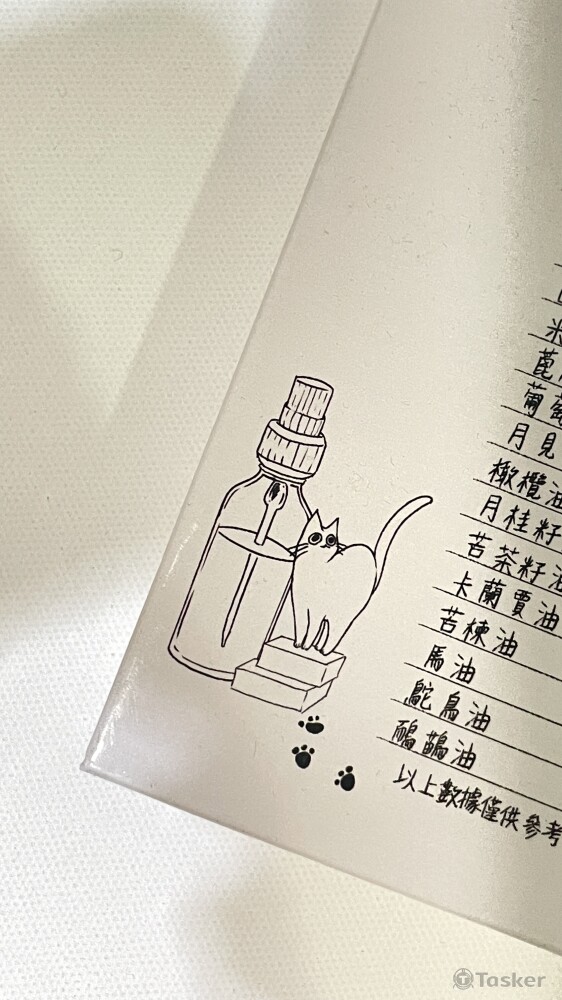 米
蓖
葡萄
月見
橄欖油
月桂籽
苦茶籽油
卡蘭賈油
苦楝油
馬油
鴕鳥油
鴯鶓油
以上數據僅供參考
Tasker